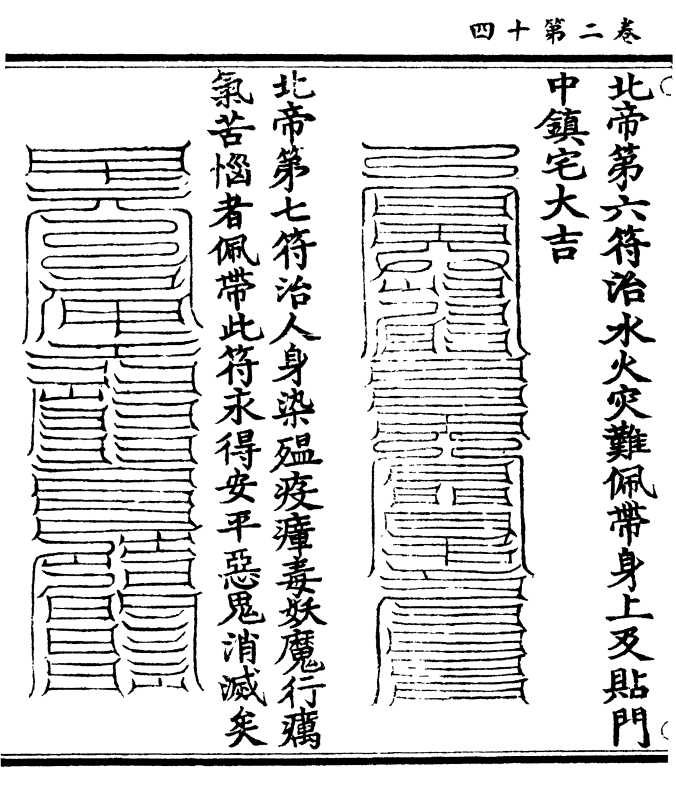 卷二第十四
北帝第六符治水火灾難佩帶身上及貼門
中鎮宅大吉
北帝第七符治人身染瘟疫瘴毒妖魔行癘
氣苦惱者佩帶此符求得安平惡鬼消滅矣